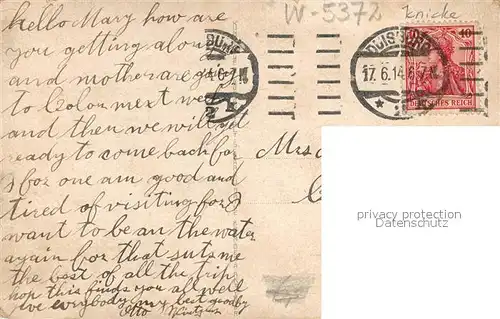 W-5372 Knicke
hello Mary how are
you getting alon
and mother are going
to Coloun next w
and then we will get
ready to come back for
I for one am good and
tired of visiting for I
want to be on the water
again for that suts me
the best of all the trip
hop this finds you all well
give everybody my best goodby
Otto
DUISBURG
17.6.14.6-7.N.
* 2
40
DEUTSCHES REICH
Mrs
privacy protection
Datenschutz